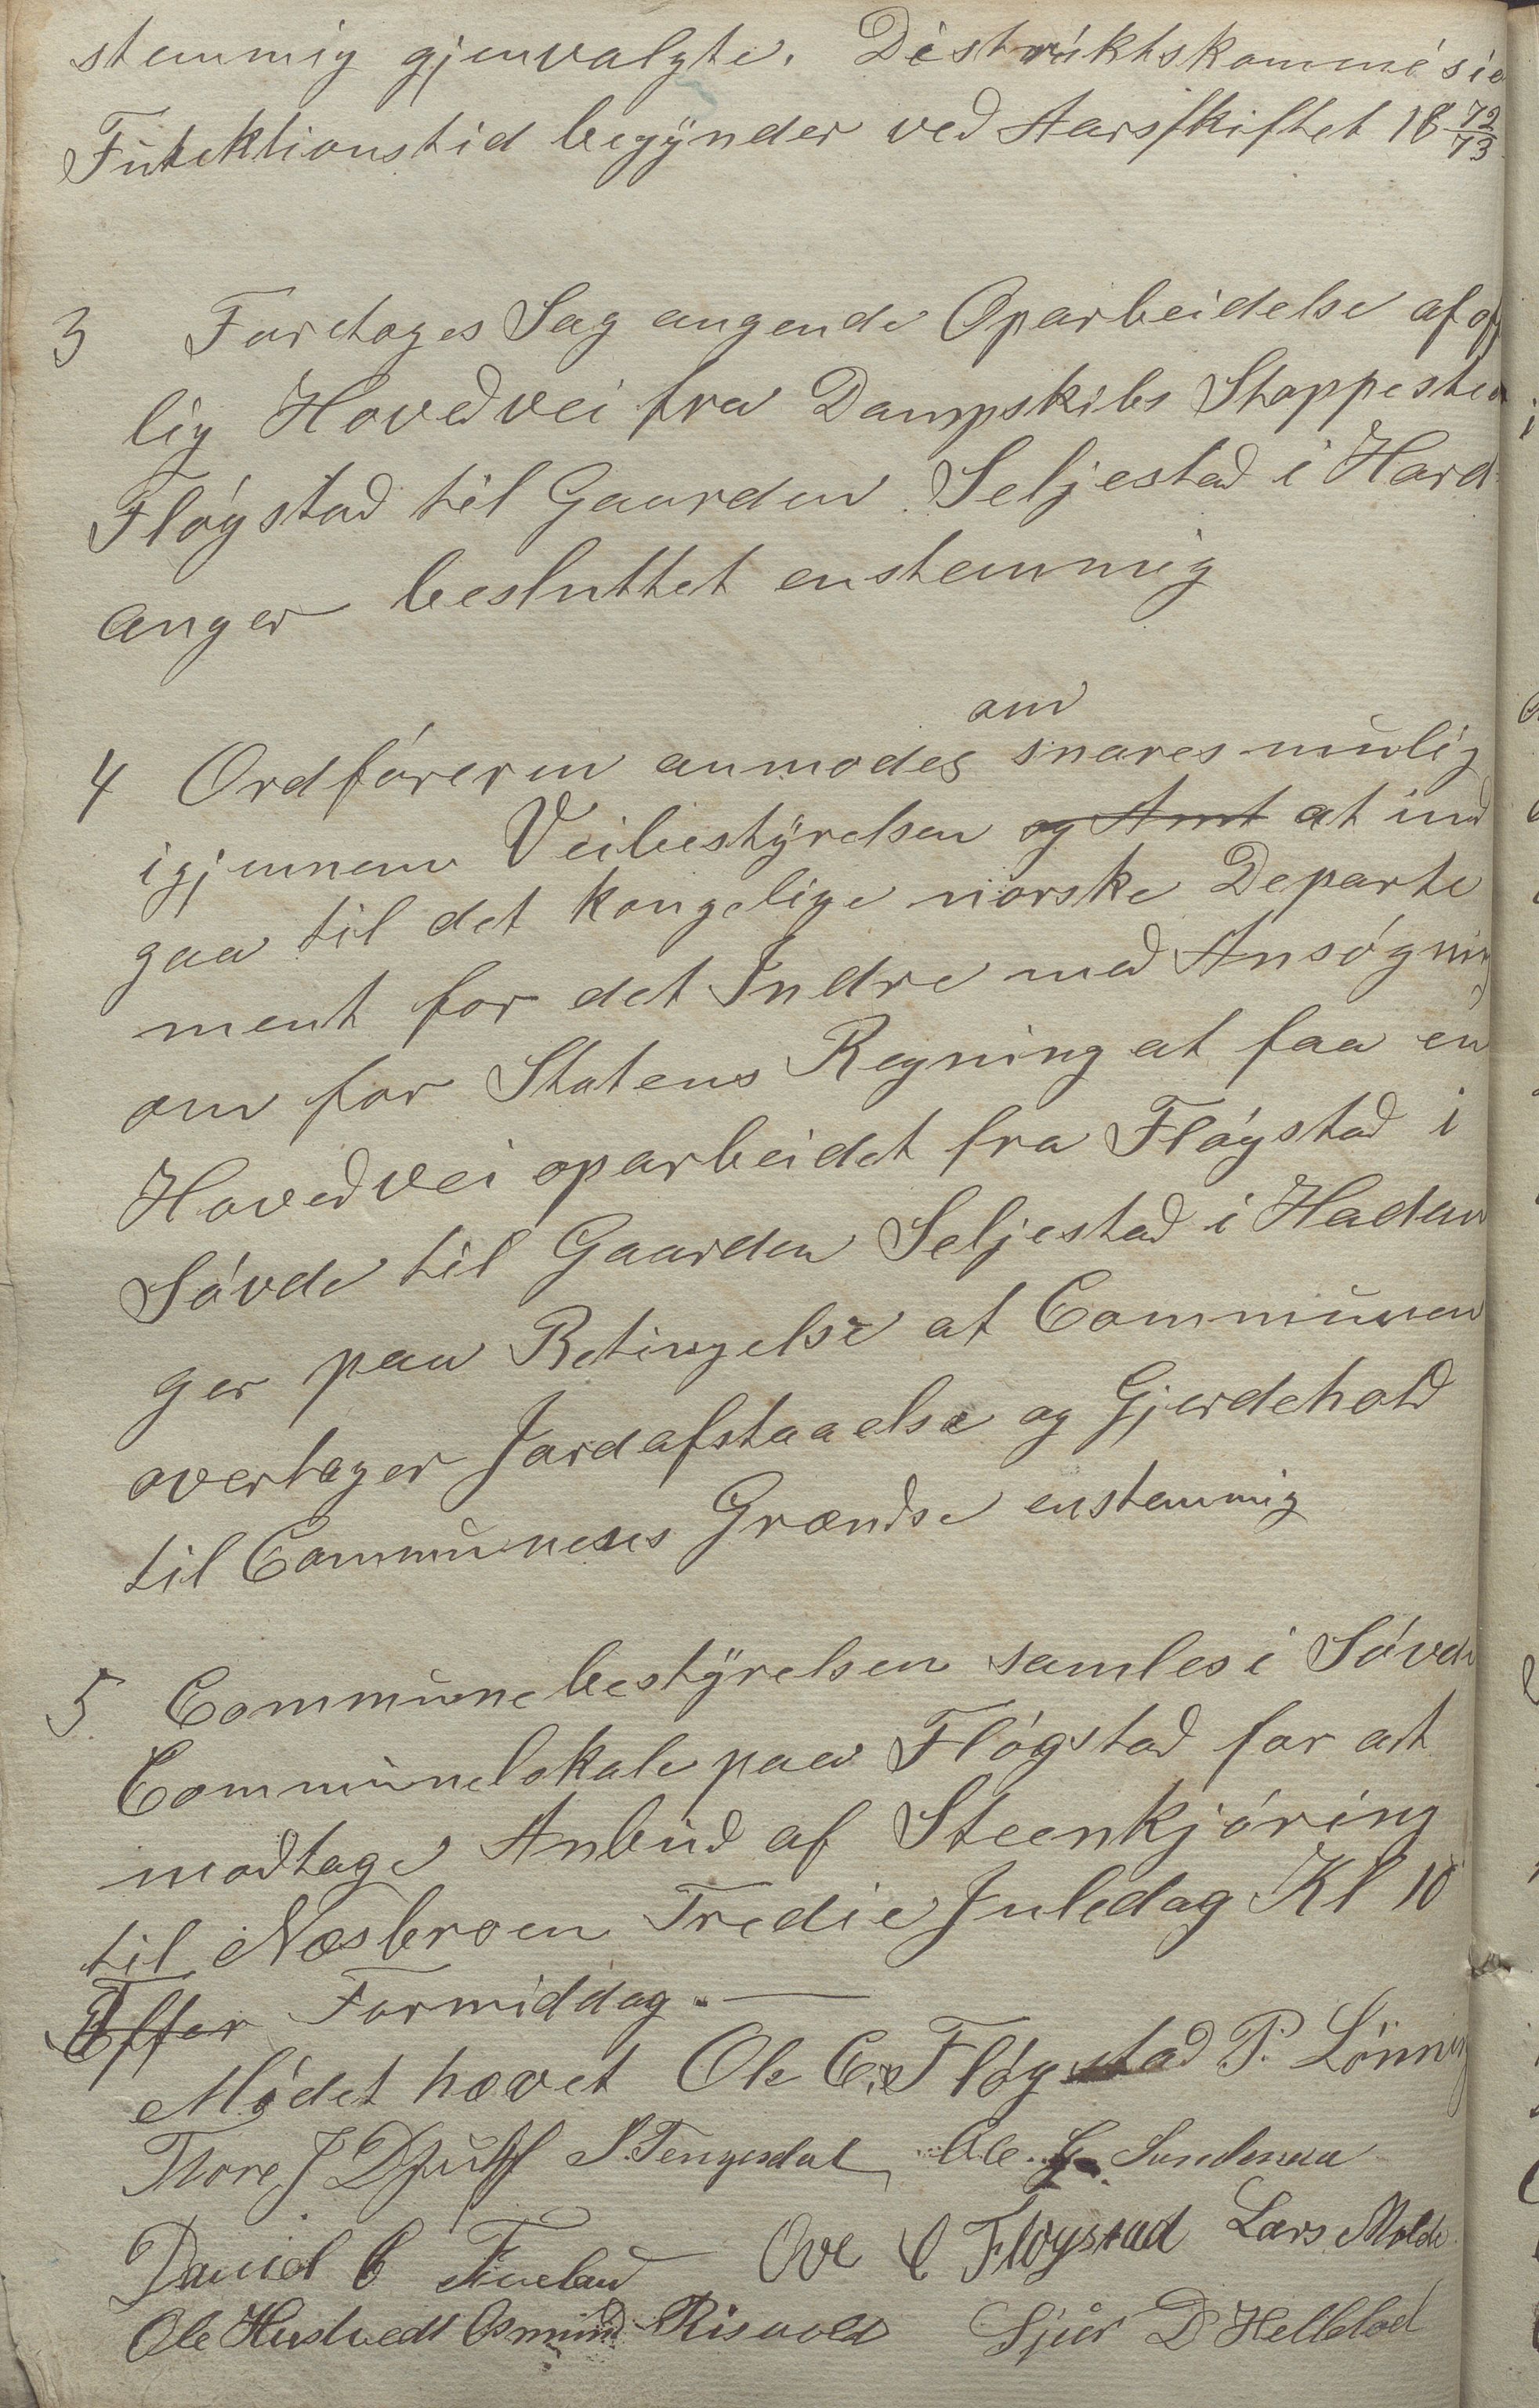 stemmig gjenvalgte. Distriktskommisio
Funktionstid begÿnder ved Aarsskiftet 18 72/73
3 Foretages Sag angende Oparbeidelse af of
lig Hovedvei fra Dampskibs Stoppested
Fløgstad til Gaarden Seljestad i Hard
anger besluttet enstemmig
om
4 Ordføreren anmodes snares mulig
igjennem Veibestÿrelsen og Amt at ind
gaa til det kongelige norske Departe
ment for det Indre med Ansøgning
om for Statens Regning at faa en
Hovedvei oparbeidet fra Fløgstad i
Søvde til Gaarden Seljestad i Hadan
ger paa Betingelse at Communen
overtager Jordafstaaelse og Gjerdehold
til Communens Grændse enstemmig
5 Communebestÿrelsen samles i Søvde
Communelokale paa Fløgstad for at
modtage Anbud af Steenkjøring
til Næsbroen Tredie Juledag Kl 10
Efter Formiddag.
Mødet hævet Ole C. Fløgstad P. Lönning
Thore J Djuff S. Tengesdal Ole G. Sundenaa
Daniel C Fineland Ove C Fløgstad Lars Molde
Ole Hustvedt Osmund Risvold Sjur D Helleland